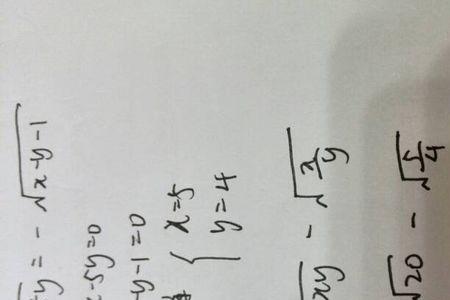 y = -√(x-y-1)
-5y=0
-y-1=0
{ x=5
y=4
√xy - √(x/y)
√20 - √(5/4)